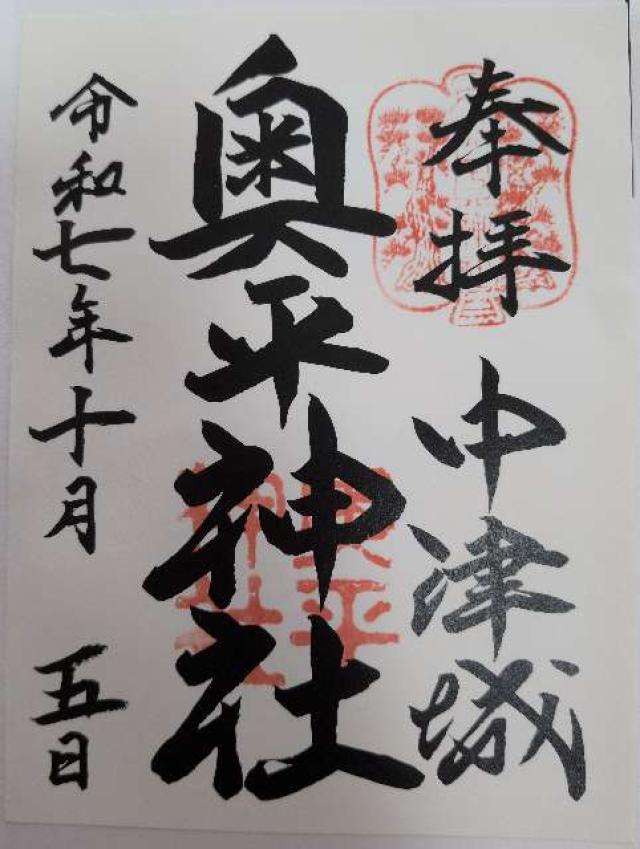 奉拝
中津城
奥平神社
奥平
神社
令和七年十月 五日